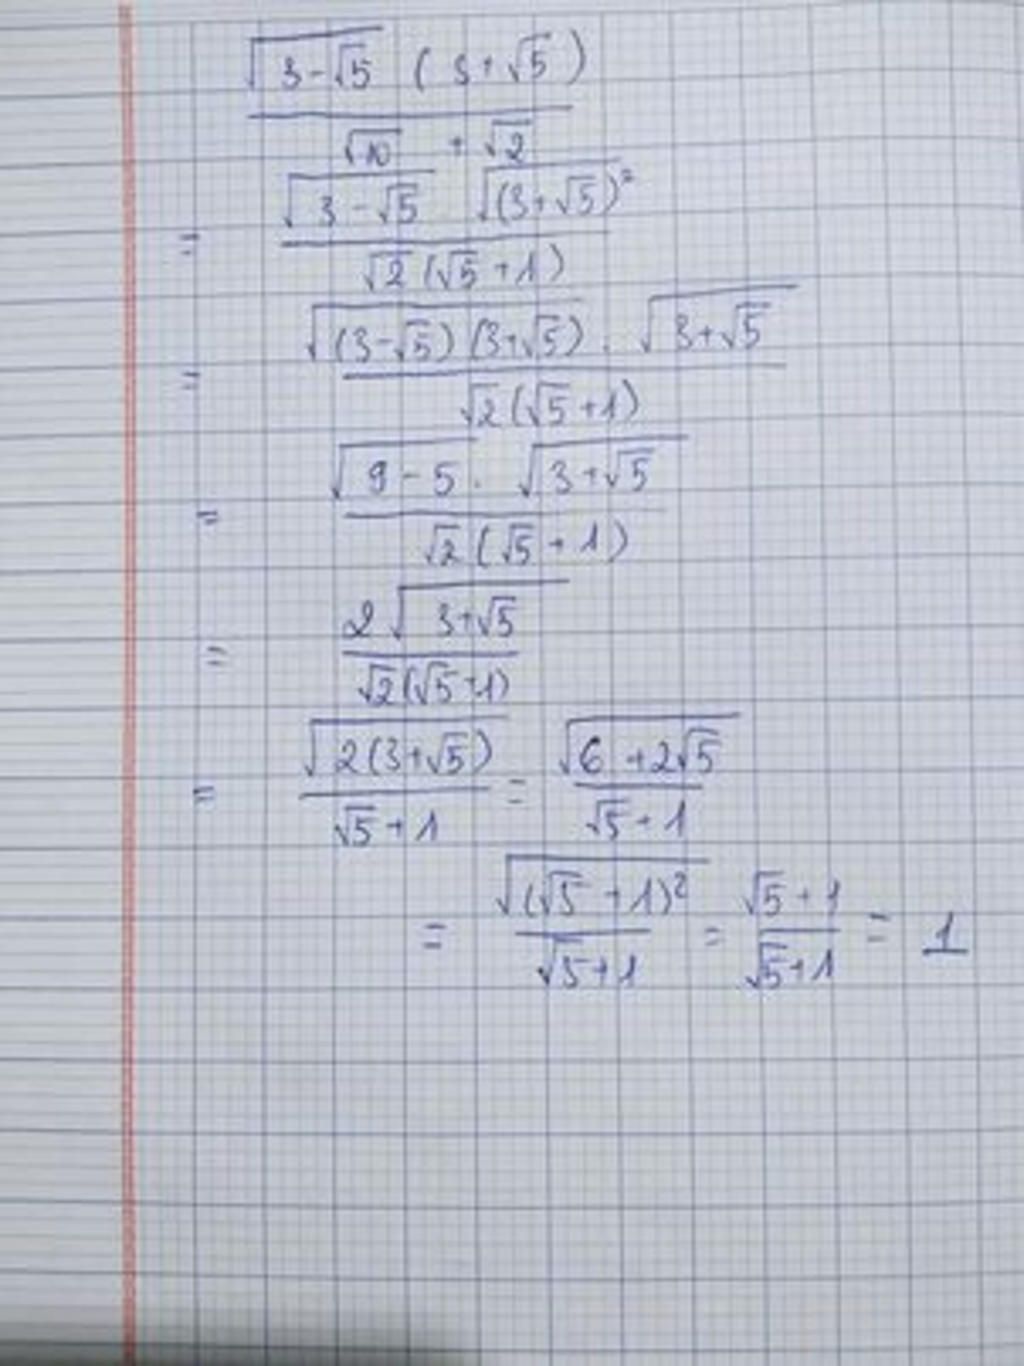 √(3-√5) (3+√5)
√10 + √2
= √(3-√5) √(3+√5)²
√2(√5+1)
= √((3-√5)(3+√5)) . √(3+√5)
√2(√5+1)
= √(9-5) . √(3+√5)
√2(√5+1)
= 2√(3+√5)
√2(√5+1)
= √(2(3+√5)) = √(6+2√5)
√5+1 √5+1
= √((√5+1)²) = √5+1 = 1
√5+1 √5+1